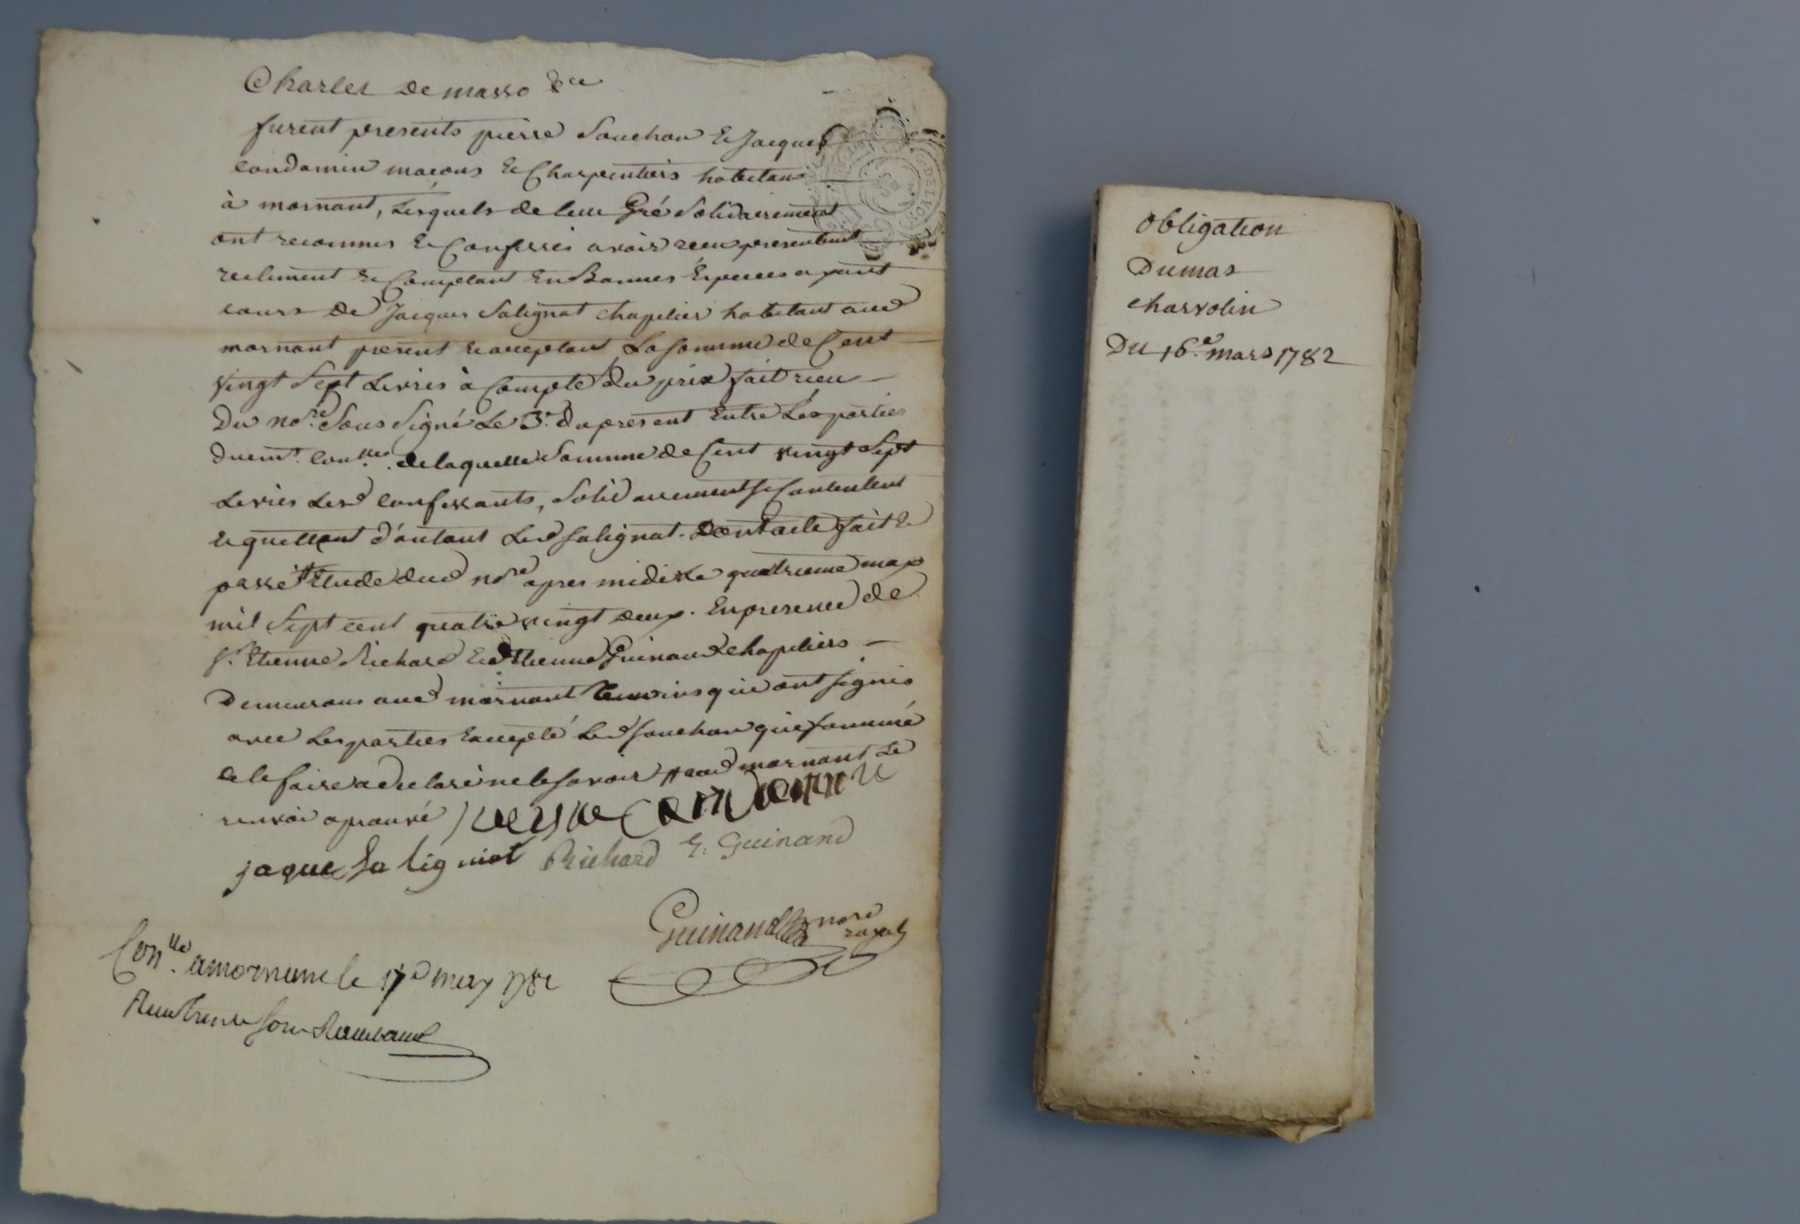 Charles de masso &ce
furent presents pierre Souchon & Jacques
Condamin maçons & Charpentiers habitans
à mornant, Lesquels de leur Gré Solidairement
ont reconnus & Confessés avoir reçu presentemt
reellement & Comptant En Bonnes Especes ayant
cours de Jacques Salignat chapelier habitant aud
mornant present & acceptant La somme de Cent
vingt Sept Livres à Compte du prix fait reçu
du nore Sous Signé Le 3e du present Entre Les parties
duemt conllé. de laquelle Somme de Cent vingt Sept
Livres Lesd confessants, Solidairement se Contentent
& quittent d'autant Led Salignat. Dont acte fait &
passé Etude dud nore apres midi Le quatrieme may
mil Sept cent quatre vingt deux. En presence de
sr Etienne Richard & Etienne Guinand chapeliers
Demeurans aud mornant temoins qui ont signés
avec Les parties Excepté Led Souchon qui sommé
de le faire a declaré ne le savoir // aud mornant Le
renvoi aprouvé Condamin
jaque Salignat Richard E: Guinand
Guinand nore royal
Conllé a mornant le 17e may 1782
Rambaud
obligation
Dumas
charvolin
Du 16e mars 1782